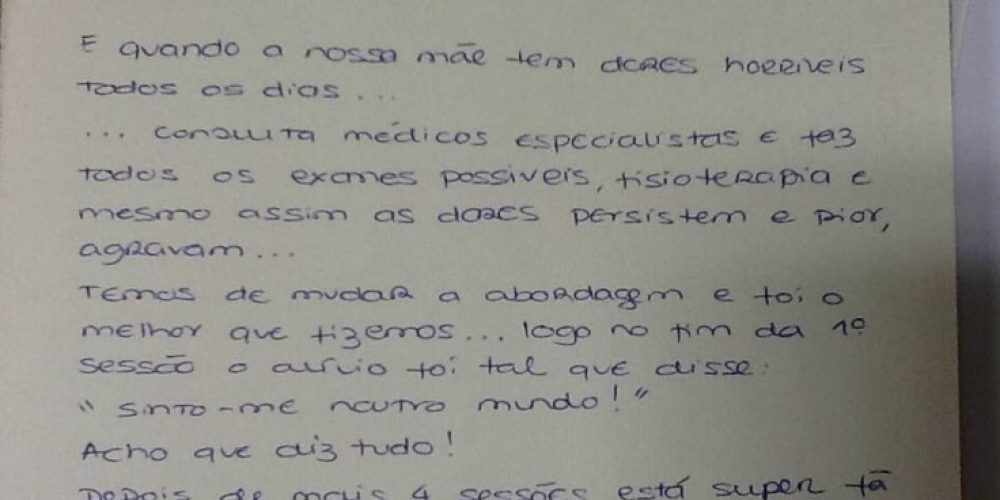 E quando a nossa mãe tem dores horriveis
todos os dias...
... consulta médicos especialistas e faz
todos os exames possiveis, fisioterapia e
mesmo assim as dores persistem e pior,
agravam...
Temos de mudar a abordagem e foi o
melhor que fizemos... logo no fim da 1º
sessão o alívio foi tal que disse:
"Sinto-me noutro mundo!"
Acho que diz tudo!
Depois de mais 4 sessões está super fã